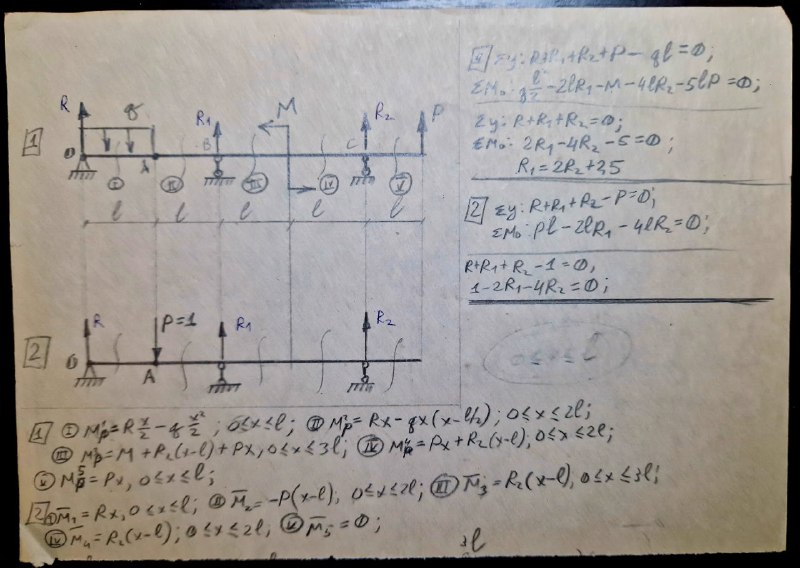 R q R₁ M R₂ P
1 0 A B C
I II III IV V
l l l l l
R P=1 R₁ R₂
2 0 A
1 Σy: R+R₁+R₂+P-ql=0;
ΣM₀: q l²/2-2lR₁-M-4lR₂-5lP=0;
Σy: R+R₁+R₂=0;
ΣM₀: 2R₁-4R₂-5=0;
R₁=2R₂+2,5
2 Σy: R+R₁+R₂-P=0;
ΣM₀: Pl-2lR₁-4lR₂=0;
R+R₁+R₂-1=0,
1-2R₁-4R₂=0;
0≤x≤l
1 I M¹p=R x/2-q x²/2; 0≤x≤l; II M²p=Rx-qx(x-l/2); 0≤x≤2l;
III M³p=M+R₂(x-l)+Px, 0≤x≤3l; IV M⁴p=Px+R₂(x-l), 0≤x≤2l;
V M⁵p=Px, 0≤x≤l;
2 I M̅₁=Rx, 0≤x≤l; II M̅₂=-P(x-l); 0≤x≤2l; III M̅₃=R₂(x-l), 0≤x≤3l;
IV M̅₄=R₂(x-l); 0≤x≤2l, V M̅₅=0;